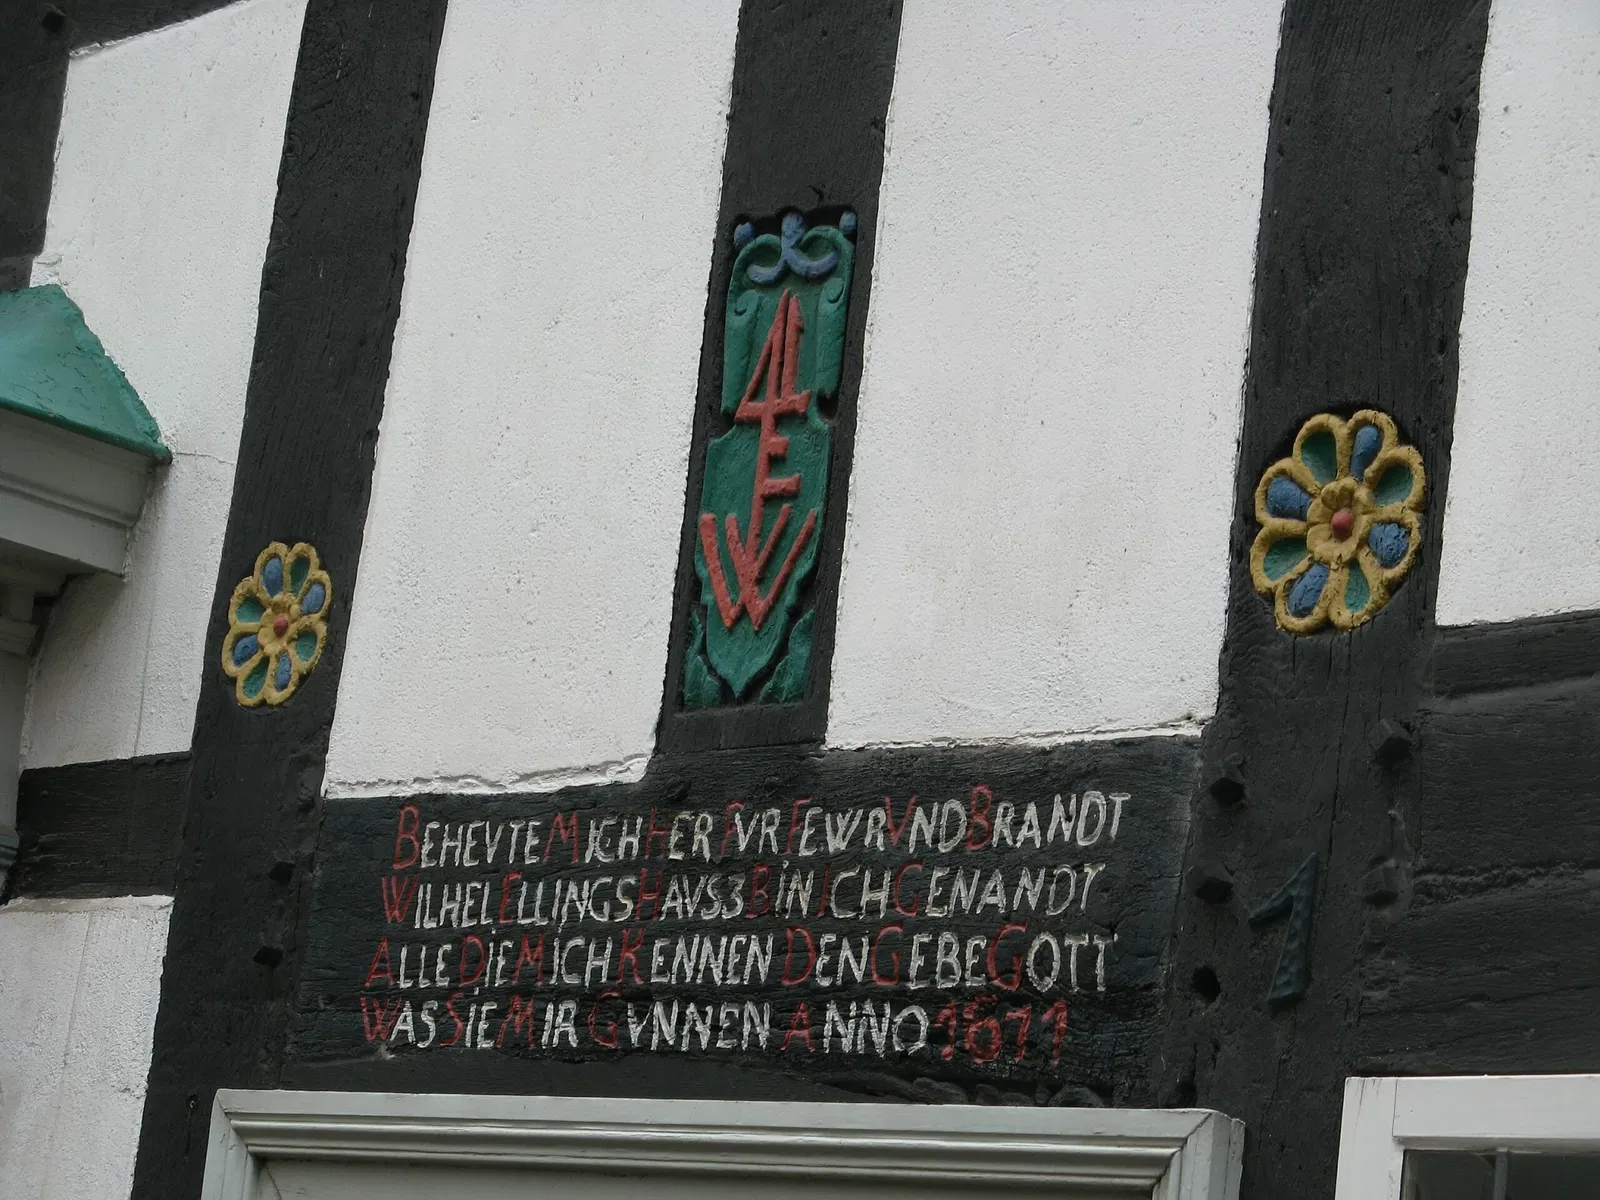 4
E
W
BEHEVTE MICH HER FVR FEWR VND BRANDT
WILHEL ELLINGSHAVS3 BIN ICH GENANDT
ALLE DIE MICH KENNEN DEN GEBE GOTT
WAS SIE MIR GVNNEN ANNO 1671
1